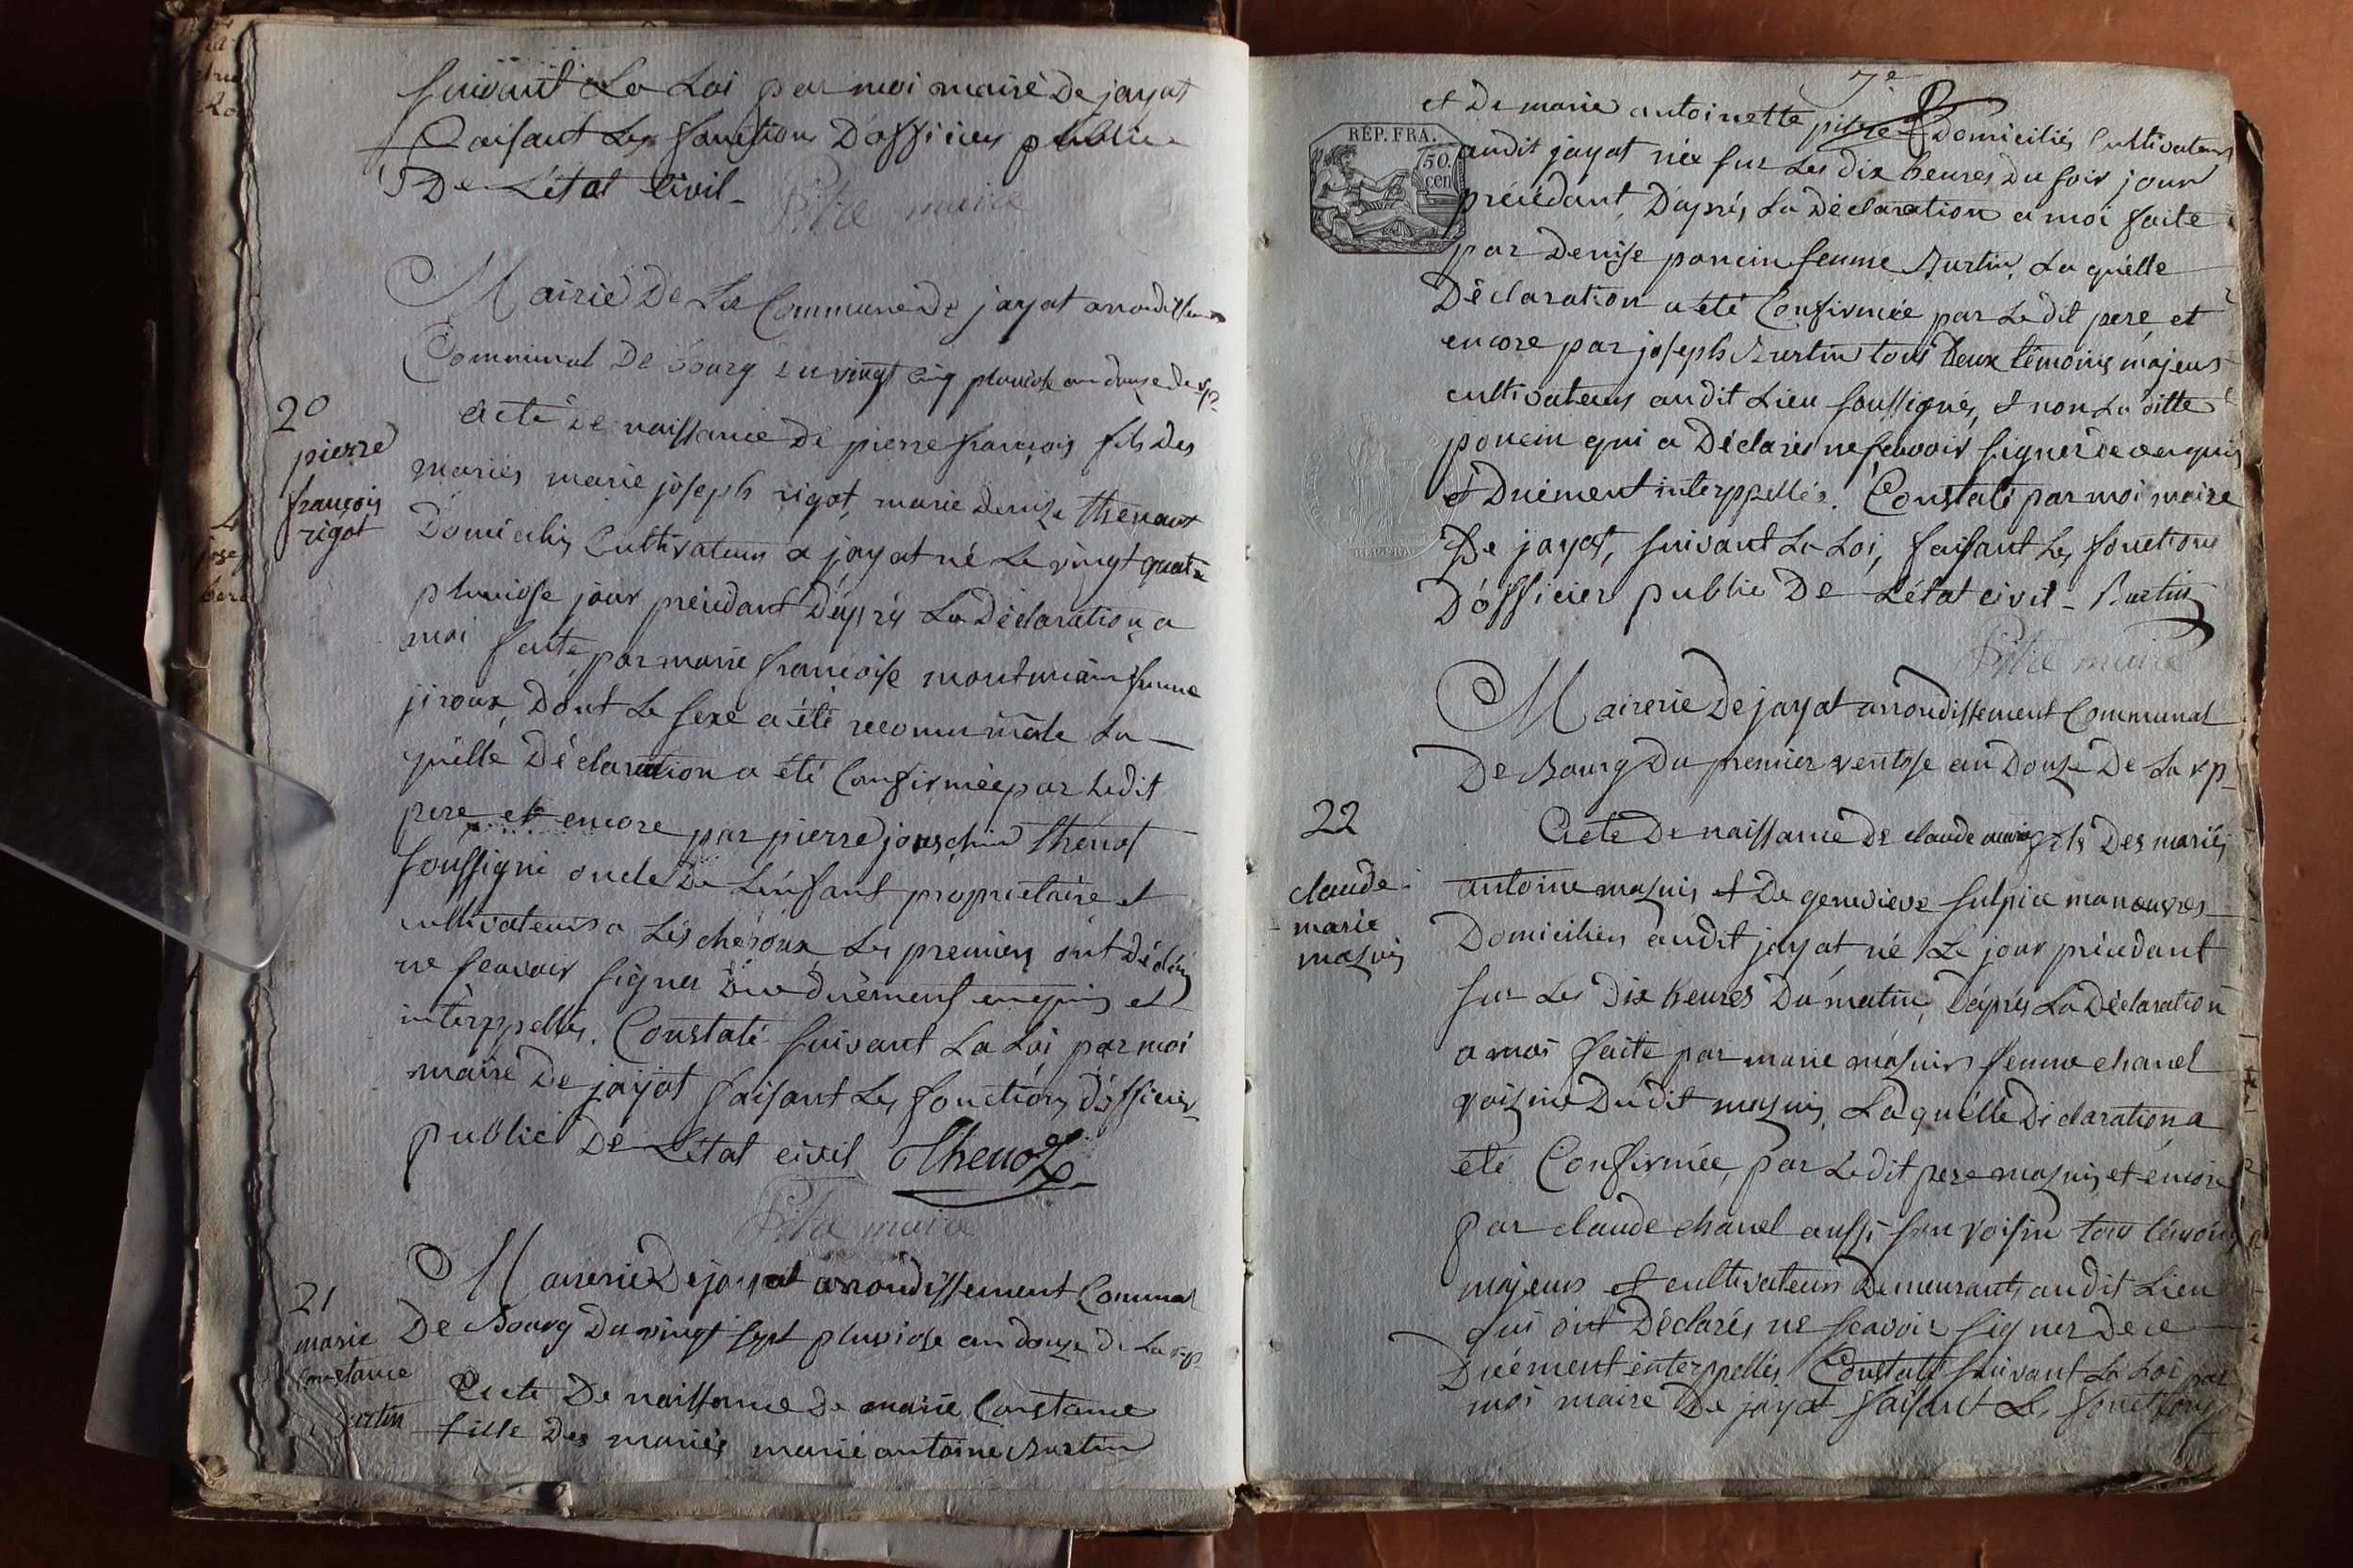 suivant La Loi par moi maire De jayat
faisant Les fonctions D'officier public
De L'état Civil -
Pitre maire
Mairie De La Commune De jayat arrondissem
Communal De Bourg Du vingt cinq pluviose an douze de la rp
20
pierre
françois
rigot
Acte De naissance De pierre françois fils Des
mariés marie joseph rigot, marie denise thenaut
Domiciliés Cultivateurs a jayat né Le vingt quatre
pluviose jour précédant D'après La Déclaration a
moi faite, par marie françoise montmain femme
jiroux, Dont Le sexe a été reconnu mâle La
quelle Déclaration a été Confirmée par Ledit
pere et encore par pierre jouachim thenot
soussigné oncle De L'enfant propriétaire et
cultivateurs a Lescheroux Les premiers ont Déclarés
ne scavoir signer De ce duëment enquis et
interppellés. Constaté suivant La Loi par moi
maire De jayat faisant Les fonctions D'officier
public De L'état civil Thenot
Pitre maire
Mairerie De jayat arrondissement Communal
21
marie
Constance
Burtin
De Bourg Du vingt sept pluviose an douze De La rp
Acte De naissance De marie Constance
fille Des mariés marie antoine Burtin
7e
et De marie antoinette pitre Domiciliés Cultivateurs
RÉP. FRA.
50
cen
audit jayat née sur Les dix heures Du soir jour
précédant, D'après La Déclaration a moi faite
par Denise poncin femme Burtin, La quelle
Déclaration a été Confirmée par Ledit pere, et
encore par joseph Burtin tous Deux témoins majeurs
cultivateurs audit Lieu soussignés, et non La ditte
poncin qui a Déclarée ne scavoir signer De ce enquis
et Duëment interppellée. Constaté par moi maire
De jayat, suivant La Loi, faisant Les fonctions
D'officier public De L'état civil - Burtin
Pitre maire
Mairerie De jayat arrondissement Communal
De Bourg Du premier ventose an Douze De La rp
22
claude
marie
masuis
Acte De naissance De claude marie fils Des mariés
antoine masuis et De genevieve sulpice manoeuvres
Domiciliés audit jayat, né Le jour précédant
sur Les Dix heures Du matin, D'après La Déclaration
a moi faite par marie masuis femme chanel
voisine Dudit masuis, Laquelle Déclaration a
été Confirmée, par Ledit pere masuis et encore
par claude chanel aussi son voisin tous témoins
majeurs et cultivateurs Demeurants audit Lieu
qui ont Déclarés ne scavoir signer De ce
Duëment interppellés Constaté suivant La Loi par
moi maire De jayat faisant Les fonctions